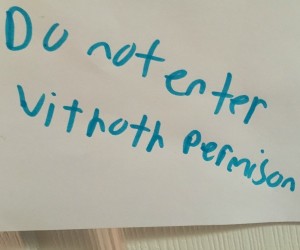 Do not enter
vithoth permison